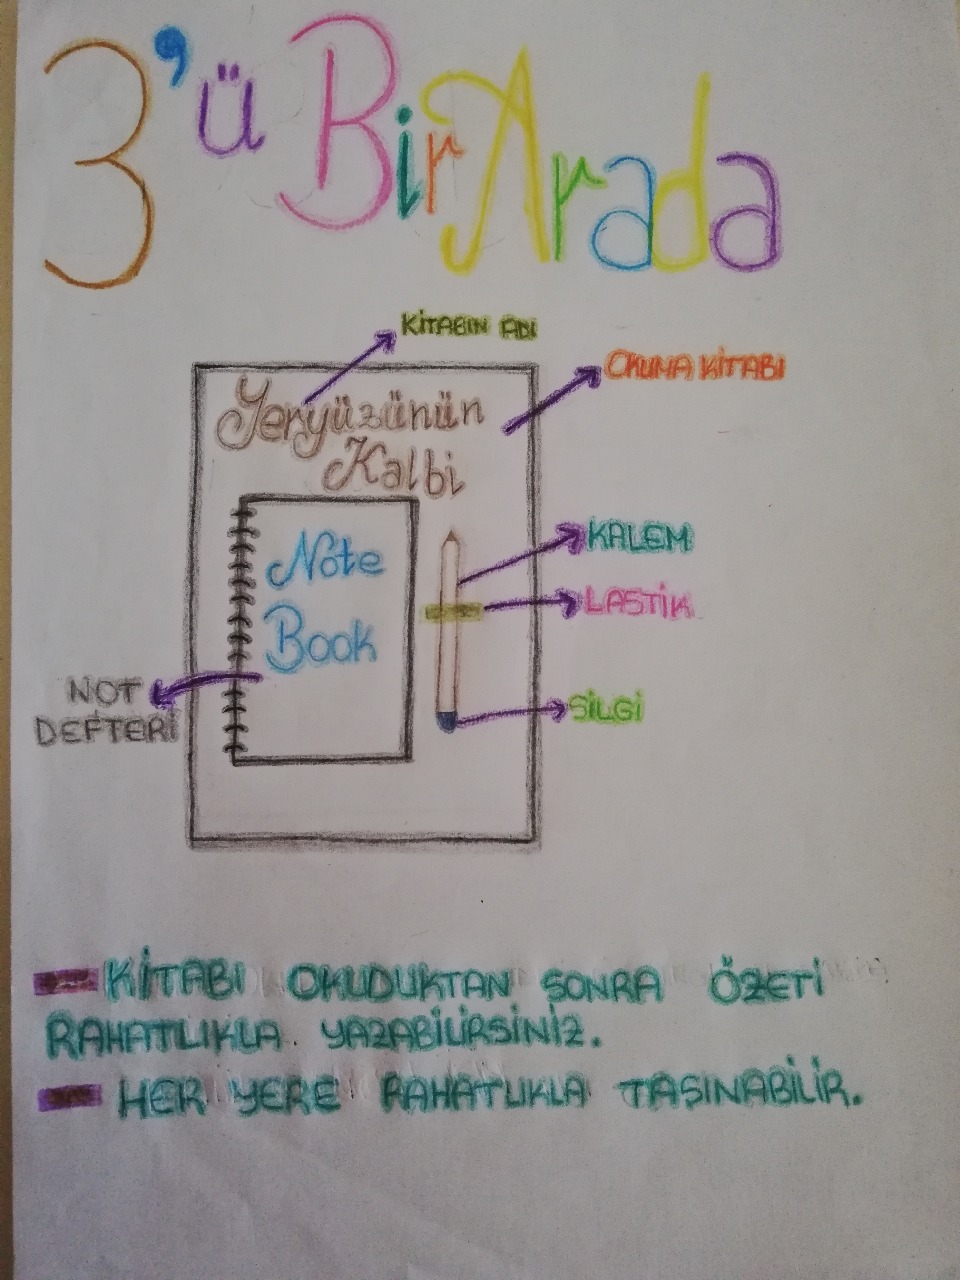 3'ü Bir Arada
KİTABIN ADI
OKUMA KİTABI
Yeryüzünün
Kalbi
Note
Book
KALEM
LASTİK
SİLGİ
NOT
DEFTERİ
- KİTABI OKUDUKTAN SONRA ÖZETİ
RAHATLIKLA YAZABİLİRSİNİZ.
- HER YERE RAHATLIKLA TAŞINABİLİR.